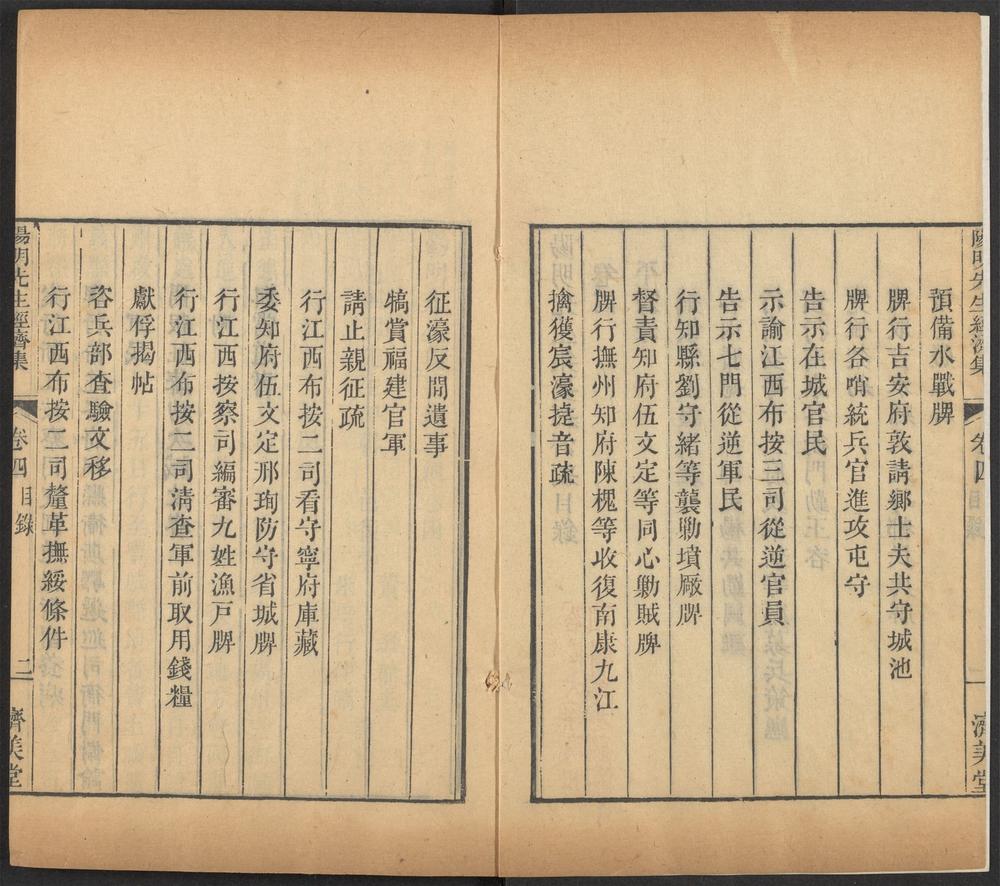 預備水戰牌
牌行吉安府敦請鄉士夫共守城池
牌行各哨統兵官進攻屯守
告示在城官民
示諭江西布按三司從逆官員
告示七門從逆軍民
行知縣劉守緒等襲勦墳厰牌
督責知府伍文定等同心勦賊牌
牌行撫州知府陳槐等收復南康九江
擒獲宸濠捷音疏
陽明先生經濟集 卷四 目錄 二 濟美堂
征濠反間遺事
犒賞福建官軍
請止親征疏
行江西布按二司看守寧府庫藏
委知府伍文定邢珣防守省城牌
行江西按察司編審九姓漁戸牌
行江西布按三司清查軍前取用錢糧
獻俘揭帖
咨兵部查驗文移
行江西布按二司釐革撫綏條件
陽明先生經濟集 卷四 目錄 二 濟美堂